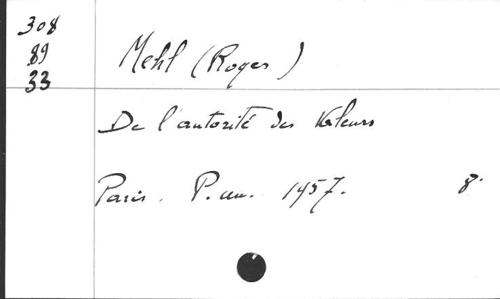 308
89
33
Mehl (Roger)
De l'autorité des Valeurs
Paris. P.un. 1957. 8.